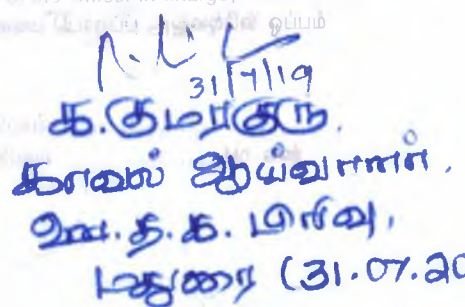 ஒப்பம்
31/7/19
க.குமரகுரு.
காவல் ஆய்வாளர்.
ஊ.த.க. பிரிவு,
மதுரை (31.07.20